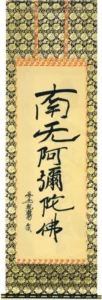 南无阿彌陀佛